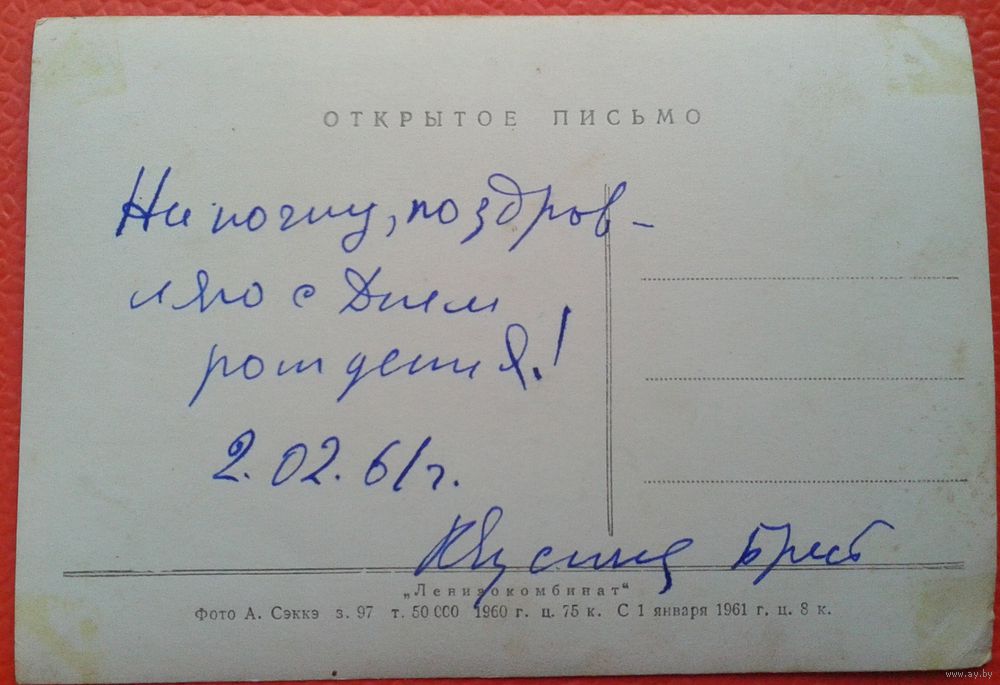 ОТКРЫТОЕ ПИСЬМО
поздров-
ляю с Днем
рождения!
2.02.61г.
Брест
„Ленизокомбинат“
Фото А. Сэккэ з. 97 т. 50 000 1960 г. ц. 75 к. С 1 января 1961 г. ц. 8 к.
www.ay.by